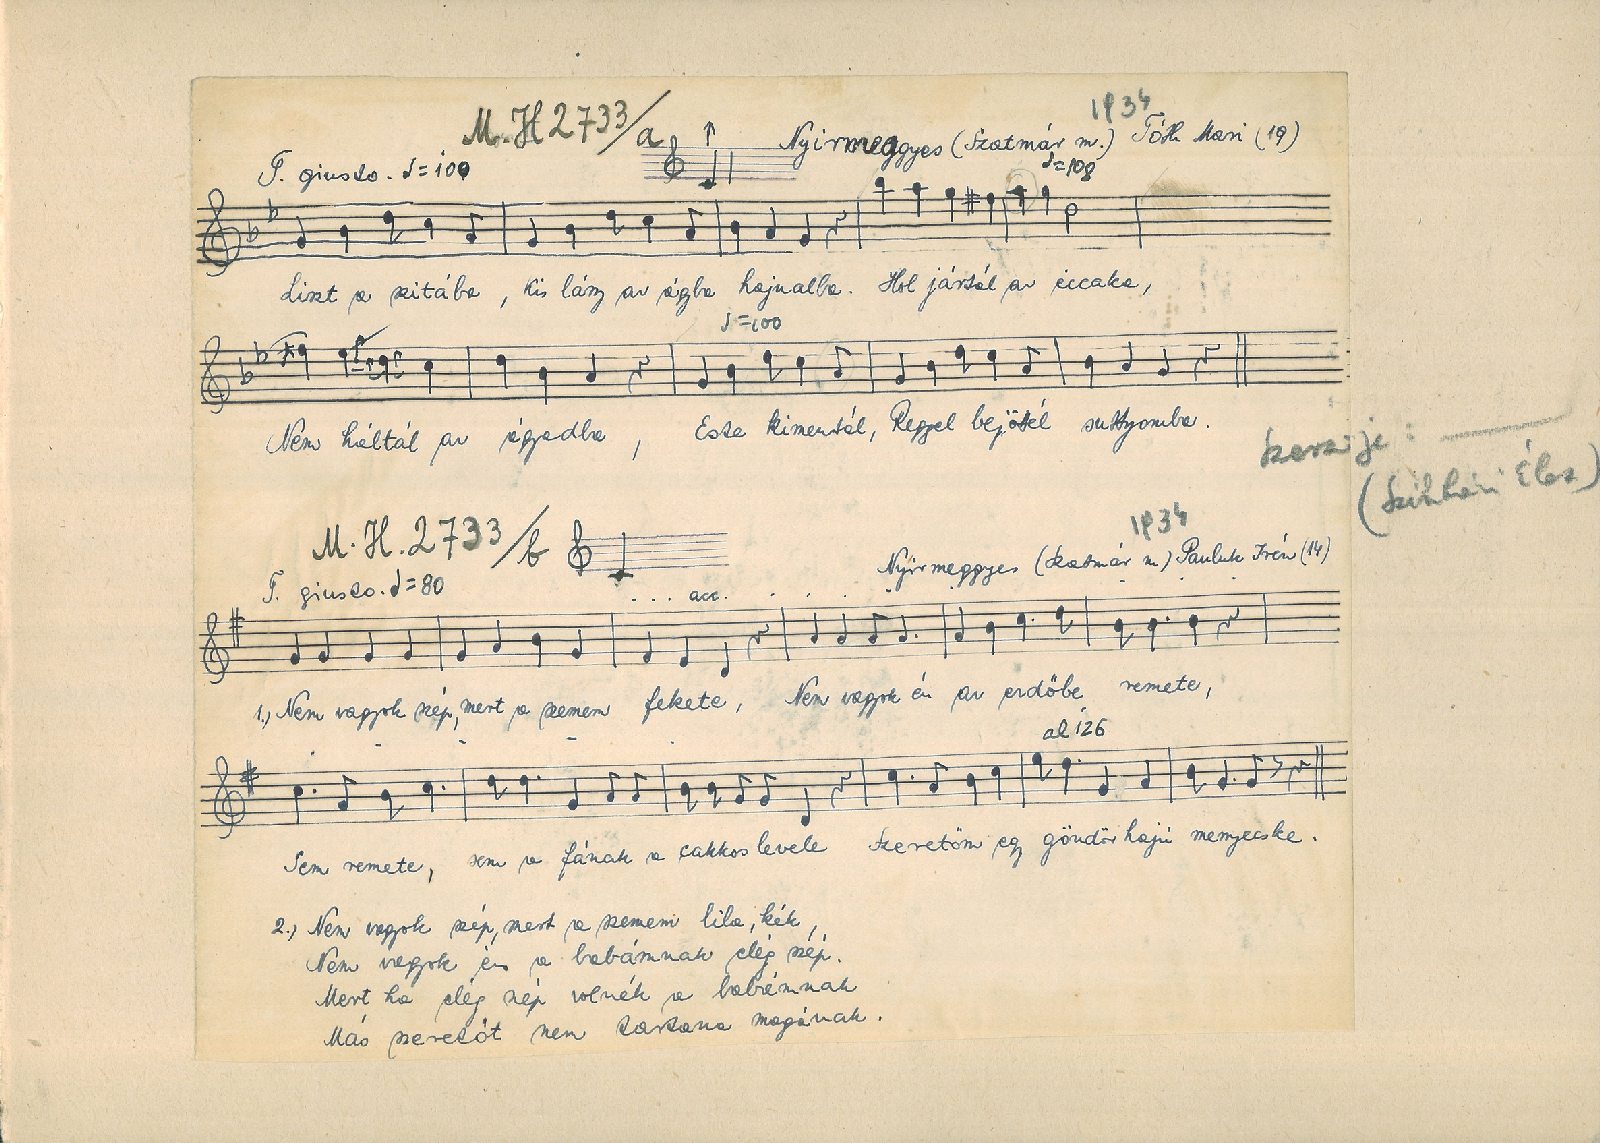 M. H 2733/a
1934
Nyírmeggyes (Szatmár m.) Tóth Mari (19)
T. giusto. ♩=100
♩=108
Liszt a szitába, kis lány az ágba hajnalba. Hol jártál az éccaka,
♩=100
Nem háltál az ágyadba, Este kimentál, Reggel bejöttél suttyomba.
szerzője:
M. H. 2733/b
1934
Nyírmeggyes (Szatmár m.) Pauluk Irén (14)
T. giusto. ♩=80
... acc. . . . .
1.) Nem vagyok szép, mert a szemem fekete, Nem vagyok én az erdőbe remete,
al 126
Sem remete, sem a fának a cakkos levele Szeretöm egy göndör hajú menyecske.
2.) Nem vagyok szép, mert a szemem lila, kék,
Nem vagyok én a babámnak elég szép.
Mert ha elég szép volnék a babámnak
Más szeretőt nem tartana magának.